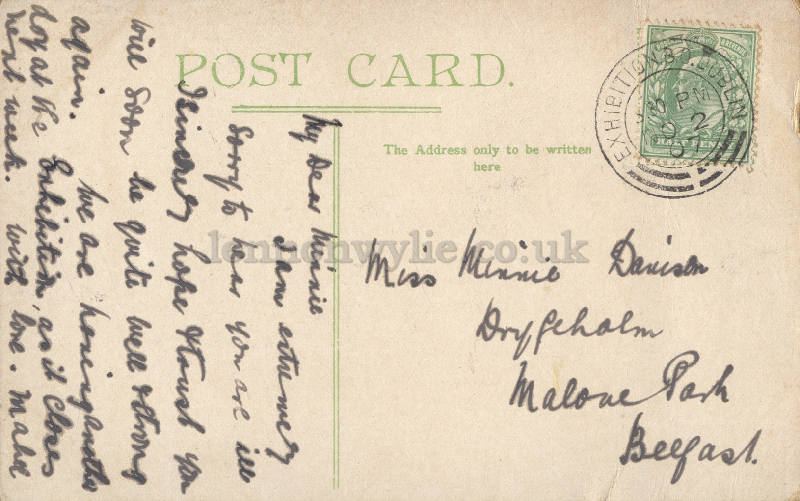 POST CARD.
The Address only to be written
here
My Dear Minnie
I am
sorry to hear you are ill
I sincerely hope & trust you
will soon be quite well & strong
again. We are having another
day at the Exhibition, as it closes
next week. With love.
Miss Minnie Davison
Malone Park
Belfast.
EXHIBITION DUBLIN
PM
HALF PENNY
lennonwylie.co.uk